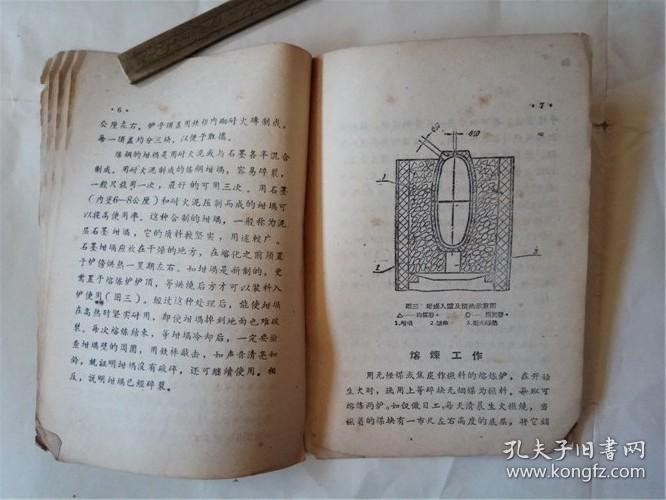 ·6·
公厘左右。炉子顶盖用铁份内砌耐火砖制成。
每一顶盖均分三块，以便于取携。
炼钢的坩埚是用耐火泥或与石墨各半混合
制成。用耐火泥制成的炼钢坩埚，容易碎裂，
一般只能用一次，最好的可用三次。用石墨
（内壁6—8公厘）和耐火泥压制而成的坩埚可
以提高使用率。这种合制的坩埚，一般称为泥
层石墨坩埚，它的质料较坚实，用途较广。
石墨坩埚应放在干燥的地方，在熔化之前须置
于炉傍烘热一星期左右。如坩埚是新制的，更
需置于熔炼炉炉顶，等烘烧后方才可以装料入
炉使用（图三）。经过这种处理后，能使坩埚
在高热时坚实耐用，即使坩埚掉到地面也难破
裂。每次熔炼结束，等坩埚冷却后，一定要检
查坩埚壁的周围，用铁棒敲击，如声音清亮如
铃，就证明坩埚没有破碎，还可继续使用。相
反，说明坩埚已经碎裂。
·7·
1
2
3
图三
1.坩埚
熔煉工作
用无烟煤或焦炭作燃料的熔炼炉，在开始
生火时，选用上等碎块无烟煤为燃料。每班可
熔炼两炉。如仅做日工，每天清晨生火燃烧，当
燃着的煤块有一市尺左右高度的底层，将它铺
孔夫子旧书网
www.kongfz.com